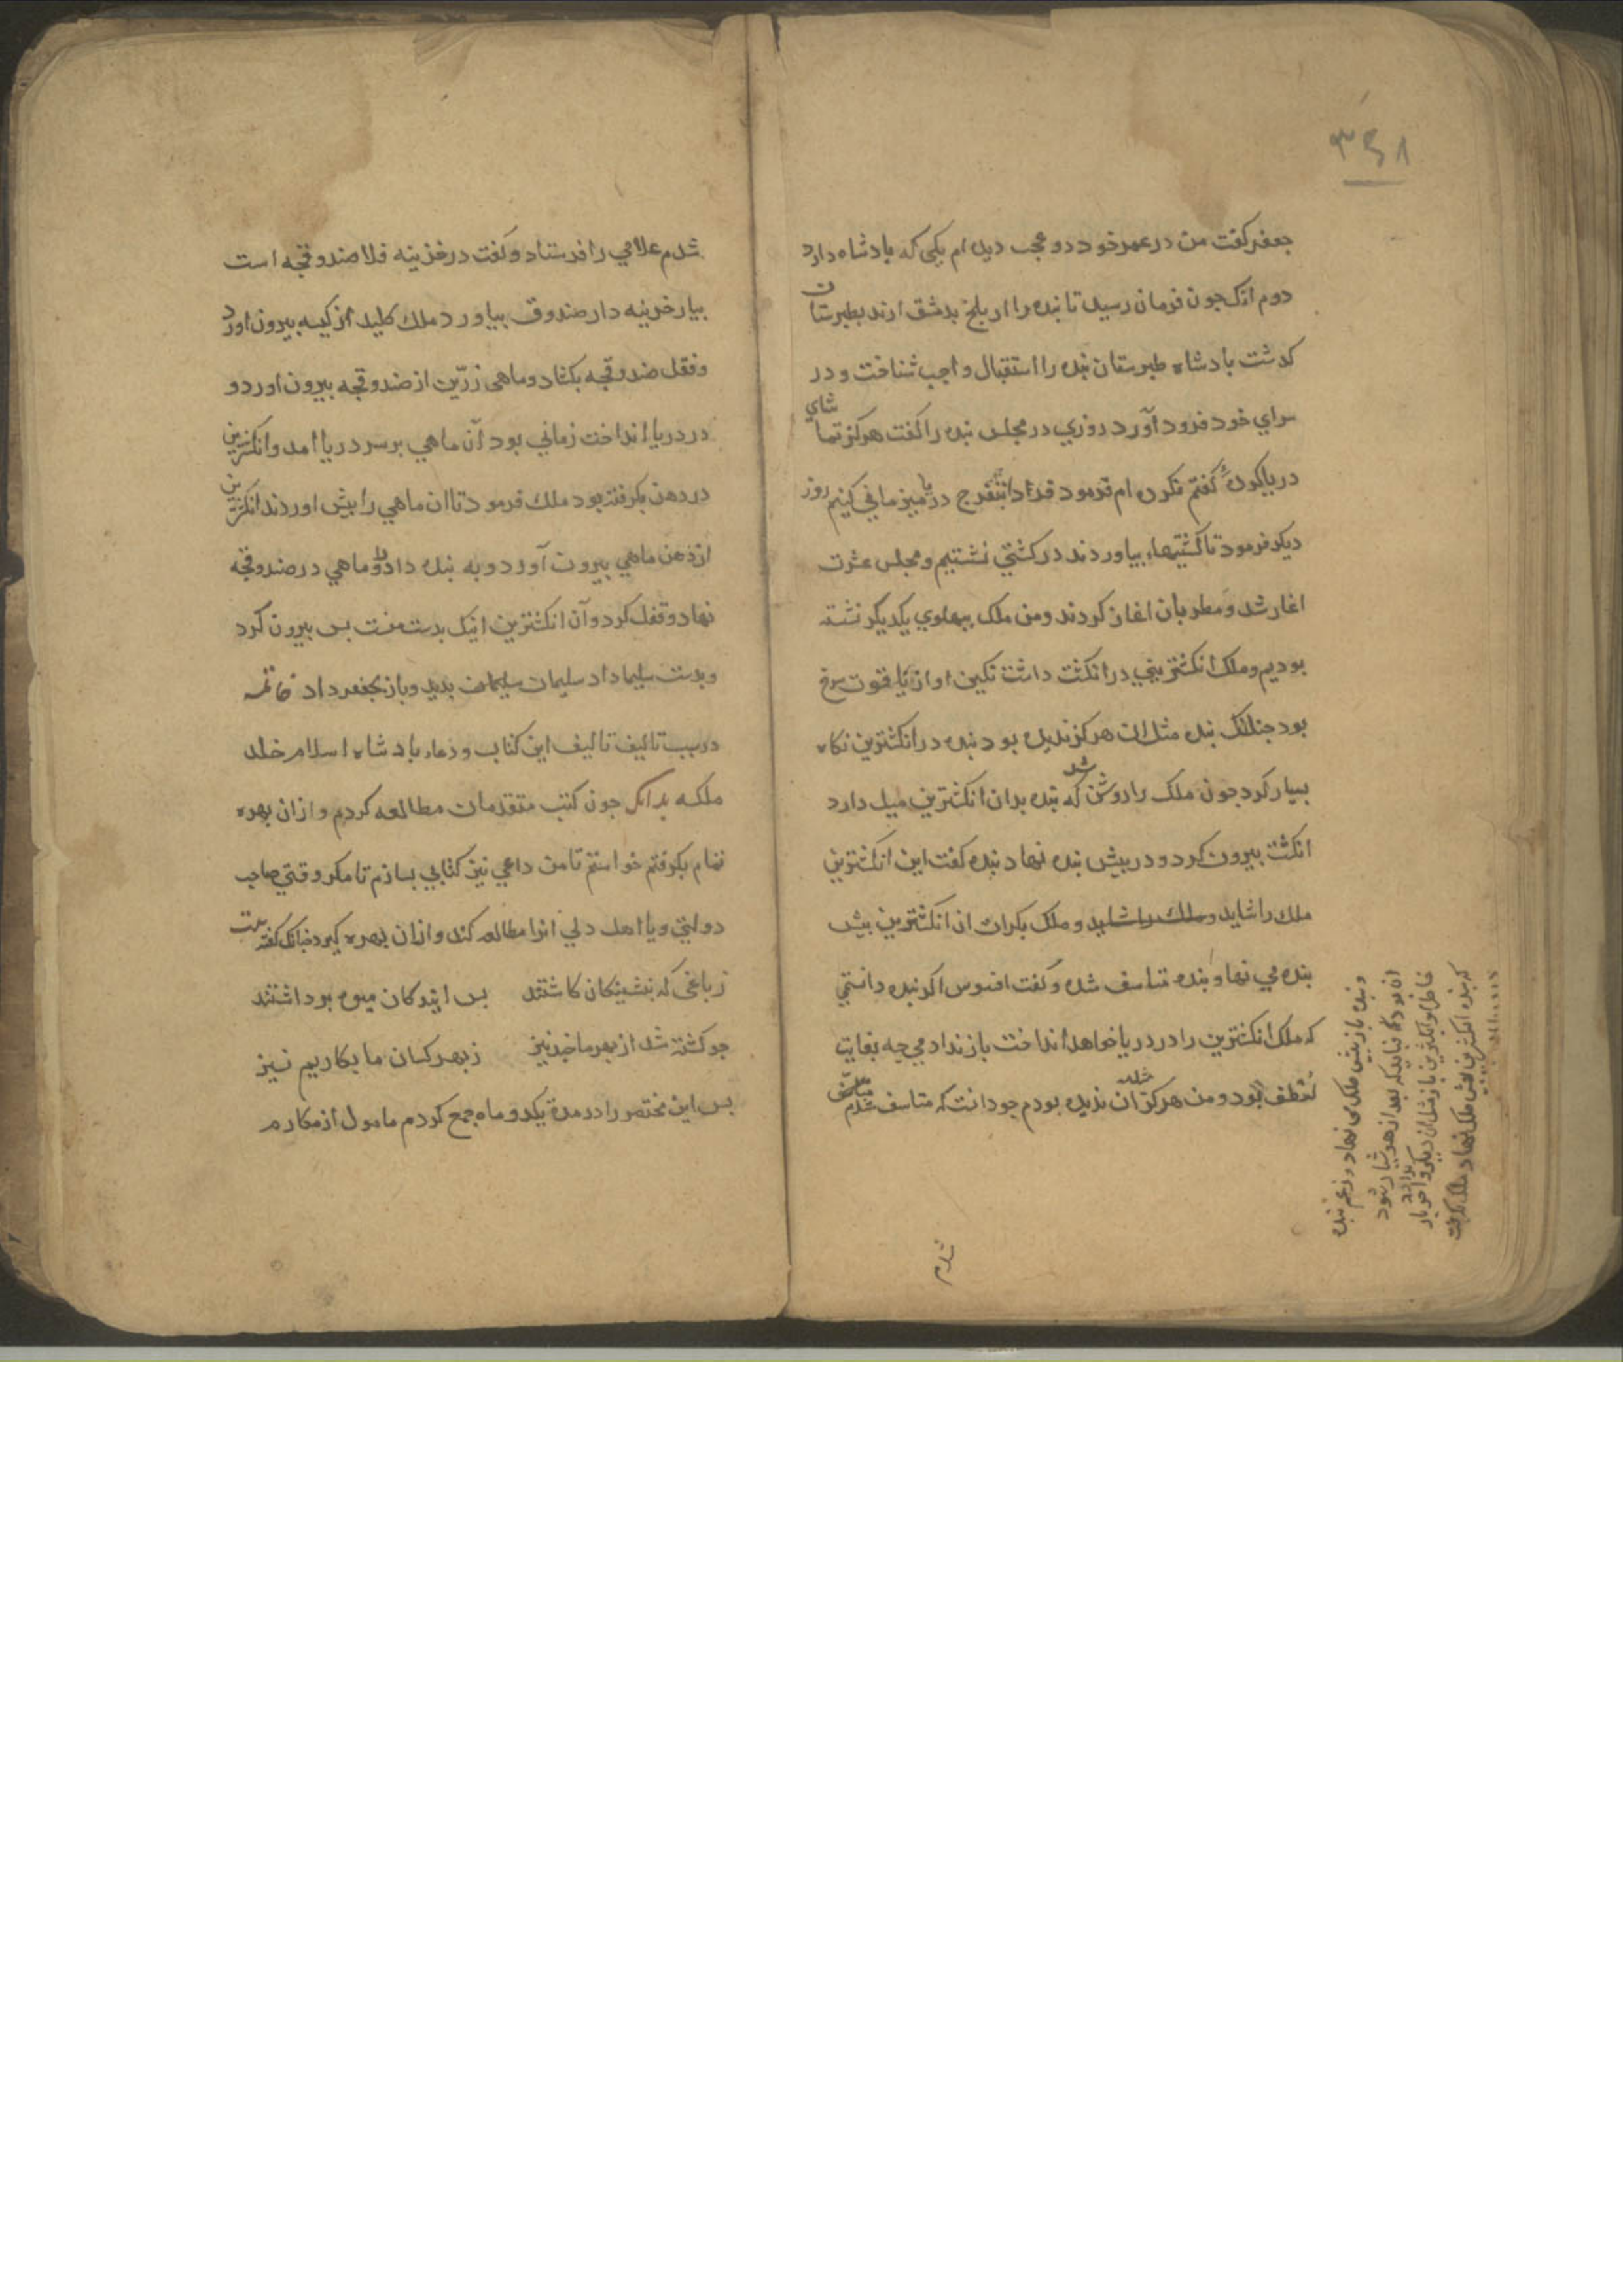 ۳۴۸
جعفر کفت من در عمر خود دو عجب دیده ام یکی که بادشاه دارد
دوم انک جون فرمان رسید تا بنده را از بلخ بدمشق ارند بطبرستان
کدشت بادشاه طبرستان بنده را استقبال واجب شناخت و در
سرای خود فرود آورد روزی در مجلس بنده را کفت هرکز تماشای
دریا کردهٔ کفتم نکرده ام فرمود فردا بتفرج دریا میزمانی کنیم روز
دیکر فرمود تا کشتیها بیاوردند در کشتی نشستیم و مجلس عشرت
اغاز شد و مطربان اغاز کردند ومن ملک ببهلوی یکدیکر نشسته
بودیم وملک انکشترینی در انکشت داشت نکین او از یاقوت سرخ
بود جنانک بنده مثل ان هرکز ندیده بود بنده در انکشترین نکاه
بسیار کرد جون ملک را روشن شد که بنده بدان انکشترین میل دارد
انکشت بیرون کرد و در بیش بنده نهاد بنده کفت این انکشترین
ملک را شاید وملک را شاید و ملک بکرات ان انکشترین بیش
بنده می نهاد بنده متاسف شده و کفت افسوس اکر بنده دانستی
که ملک انکشترین را در دریا خواهد انداخت باز ندادمی جه بغایت
بود و من هرکز ان ندیده بودم جو دانست که متاسف شدم
وبنده باز بیش ملک می نهاد و زعم بنده
ان بود که نباید که بعد از هوشیار شود
که بنده انکشترین بیش ملک نهاد ملک
شدم
شدم غلامی را فرستاد و کفت در خزینه فلا صندوقجه است
بیار خزینه دار صندوق بیاورد ملک کلید از کیسه بیرون اورد
وقفل صندوقجه بکشاد وماهی زرّین از صندوقجه بیرون اورد و
در دریا انداخت زمانی بود آن ماهی بر سر دریا امد وانکشترین
در دهن بکرفته بود ملک فرمود تا ان ماهی را بیش اوردند انکشترین
از دهن ماهی بیرون آورد و به بنده داد و ماهی در صندوقجه
نهاد و قفل کرد وآن انکشترین اینک بدست منست بس بیرون کرد
وبدست سلیما داد سلیمان سلیمان بدید وباز بجعفر داد خاتمه
در سبب تالیف تالیف این کتاب و دعاء بادشاه اسلام خلد
ملکه بدانک جون کتب متقدمان مطالعه کردم و ازان بهره
تمام بکرفتم خواستم تا من داعی نیز کتابی بسازم تا مکر وقتی صاحب
دولتی ویا اهل دلی انرا مطالعه کند وازان بهره کیرد جنانک کفته بیت
زباغی که بیشینکان کاشتند بس ایندکان میوه برداشتند
جو کشته شد از بهر ما جند نیز زبهر کسان ما بکاریم نیز
بس این مختصر را در مدة یکدو ماه جمع کردم مامول از مکارم